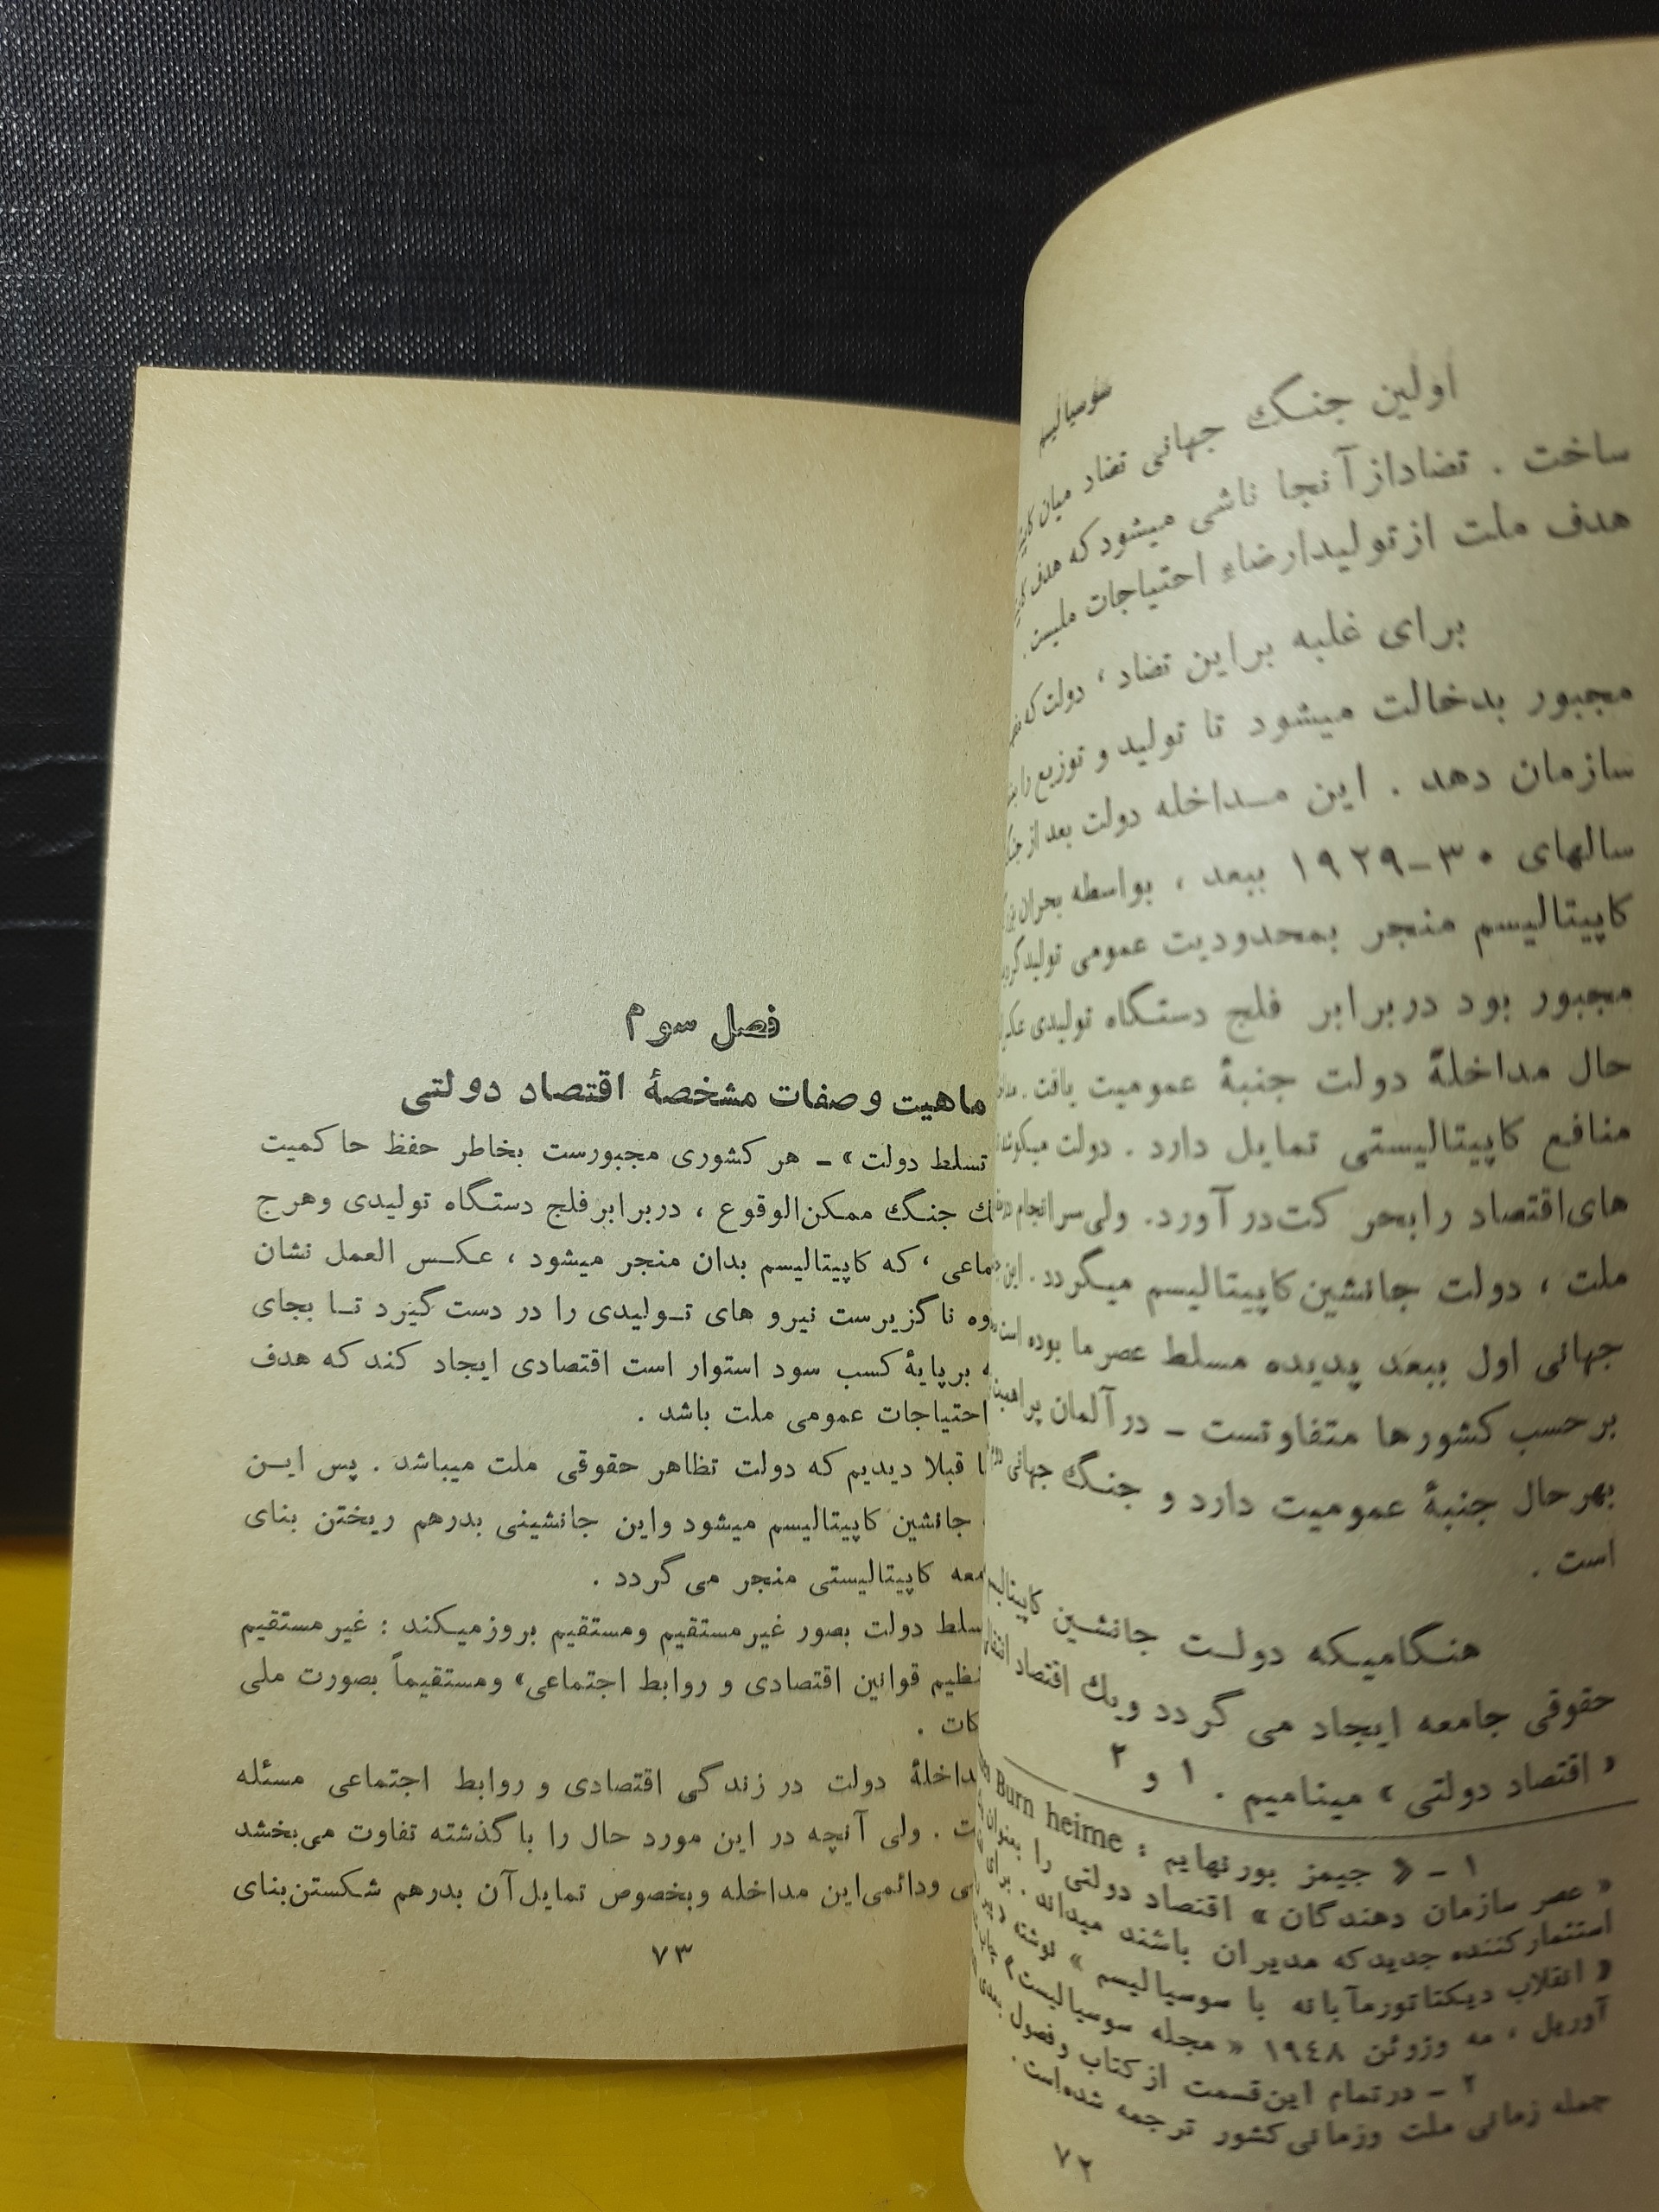 سوسیالیسم
اولین جنگ جهانی تضاد میان
ساخت . تضاداز آنجا ناشی میشود که هدف
هدف ملت از تولیدارضاء احتیاجات ملیست .
برای غلبه براین تضاد ، دولت که
مجبور بدخالت میشود تا تولید و توزیع را
سازمان دهد . این مــداخله دولت بعد از
سالهای ۳۰–۱۹۲۹ ببعد ، بواسطه بحران
کاپیتالیسم منجر بمحدودیت عمومی تولید
مجبور بود دربرابر فلج دستگاه تولیدی
حال مداخلهٔ دولت جنبهٔ عمومیت یافت .
منافع کاپیتالیستی تمایل دارد . دولت میکوشد
های‌اقتصاد رابحر کت‌در آورد. ولی‌سر انجام
ملت ، دولت جانشین کاپیتالیسم میگردد . این
جهانی اول ببعد پدیده مسلط عصر ما بوده است
برحسب کشورها متفاوتست – در آلمان
بهر حال جنبهٔ عمومیت دارد و جنگ جهانی
است .
هنگامیکه دولت جانشین
حقوقی جامعه ایجاد می گردد و یك اقتصاد
« اقتصاد دولتی » مینامیم . ۱ و ۲
۱ – « جیمز بورنهایم : Burn heime
« عصر سازمان دهندگان » اقتصاد دولتی را بعنوان
استثمار کننده جدیدکه مدیران باشند میداند . برای
« انقلاب دیکتاتورمآبانه با سوسیالیسم » نوشته
آوریل ، مه وژوئن ۱۹٤۸ « مجله سوسیالیست
۲ – درتمام این‌قسمت از کتاب و فصول بعدی
جمله زمانی ملت وزمانی کشور ترجمه شده‌است .
۷۲
فصل سوم
ماهیت و صفات مشخصهٔ اقتصاد دولتی
تسلط دولت » – هر کشوری مجبورست بخاطر حفظ حاکمیت
جنگ ممکن‌الوقوع ، دربرابر فلج دستگاه تولیدی وهرج
، که کاپیتالیسم بدان منجر میشود ، عکـس العمل نشان
ناگزیرست نیرو های تــولیدی را در دست گیرد تــا بجای
برپایهٔ کسب سود استوار است اقتصادی ایجاد کند که هدف
احتیاجات عمومی ملت باشد .
قبلا دیدیم که دولت تظاهر حقوقی ملت میباشد . پس ایــن
جانشین کاپیتالیسم میشود واین جانشینی بدرهم ریختن بنای
کاپیتالیستی منجر می گردد .
دولت بصور غیرمستقیم ومستقیم بروزمیـکند : غیرمستقیم
قوانین اقتصادی و روابط اجتماعی» ومستقیماً بصورت ملی
.
دولت در زندگی اقتصادی و روابط اجتماعی مسئله
. ولی آنچه در این مورد حال را با گذشته تفاوت می‌بخشد
ودائمی‌این مداخله وبخصوص تمایل‌آن بدرهم شکستن‌بنای
۷۳